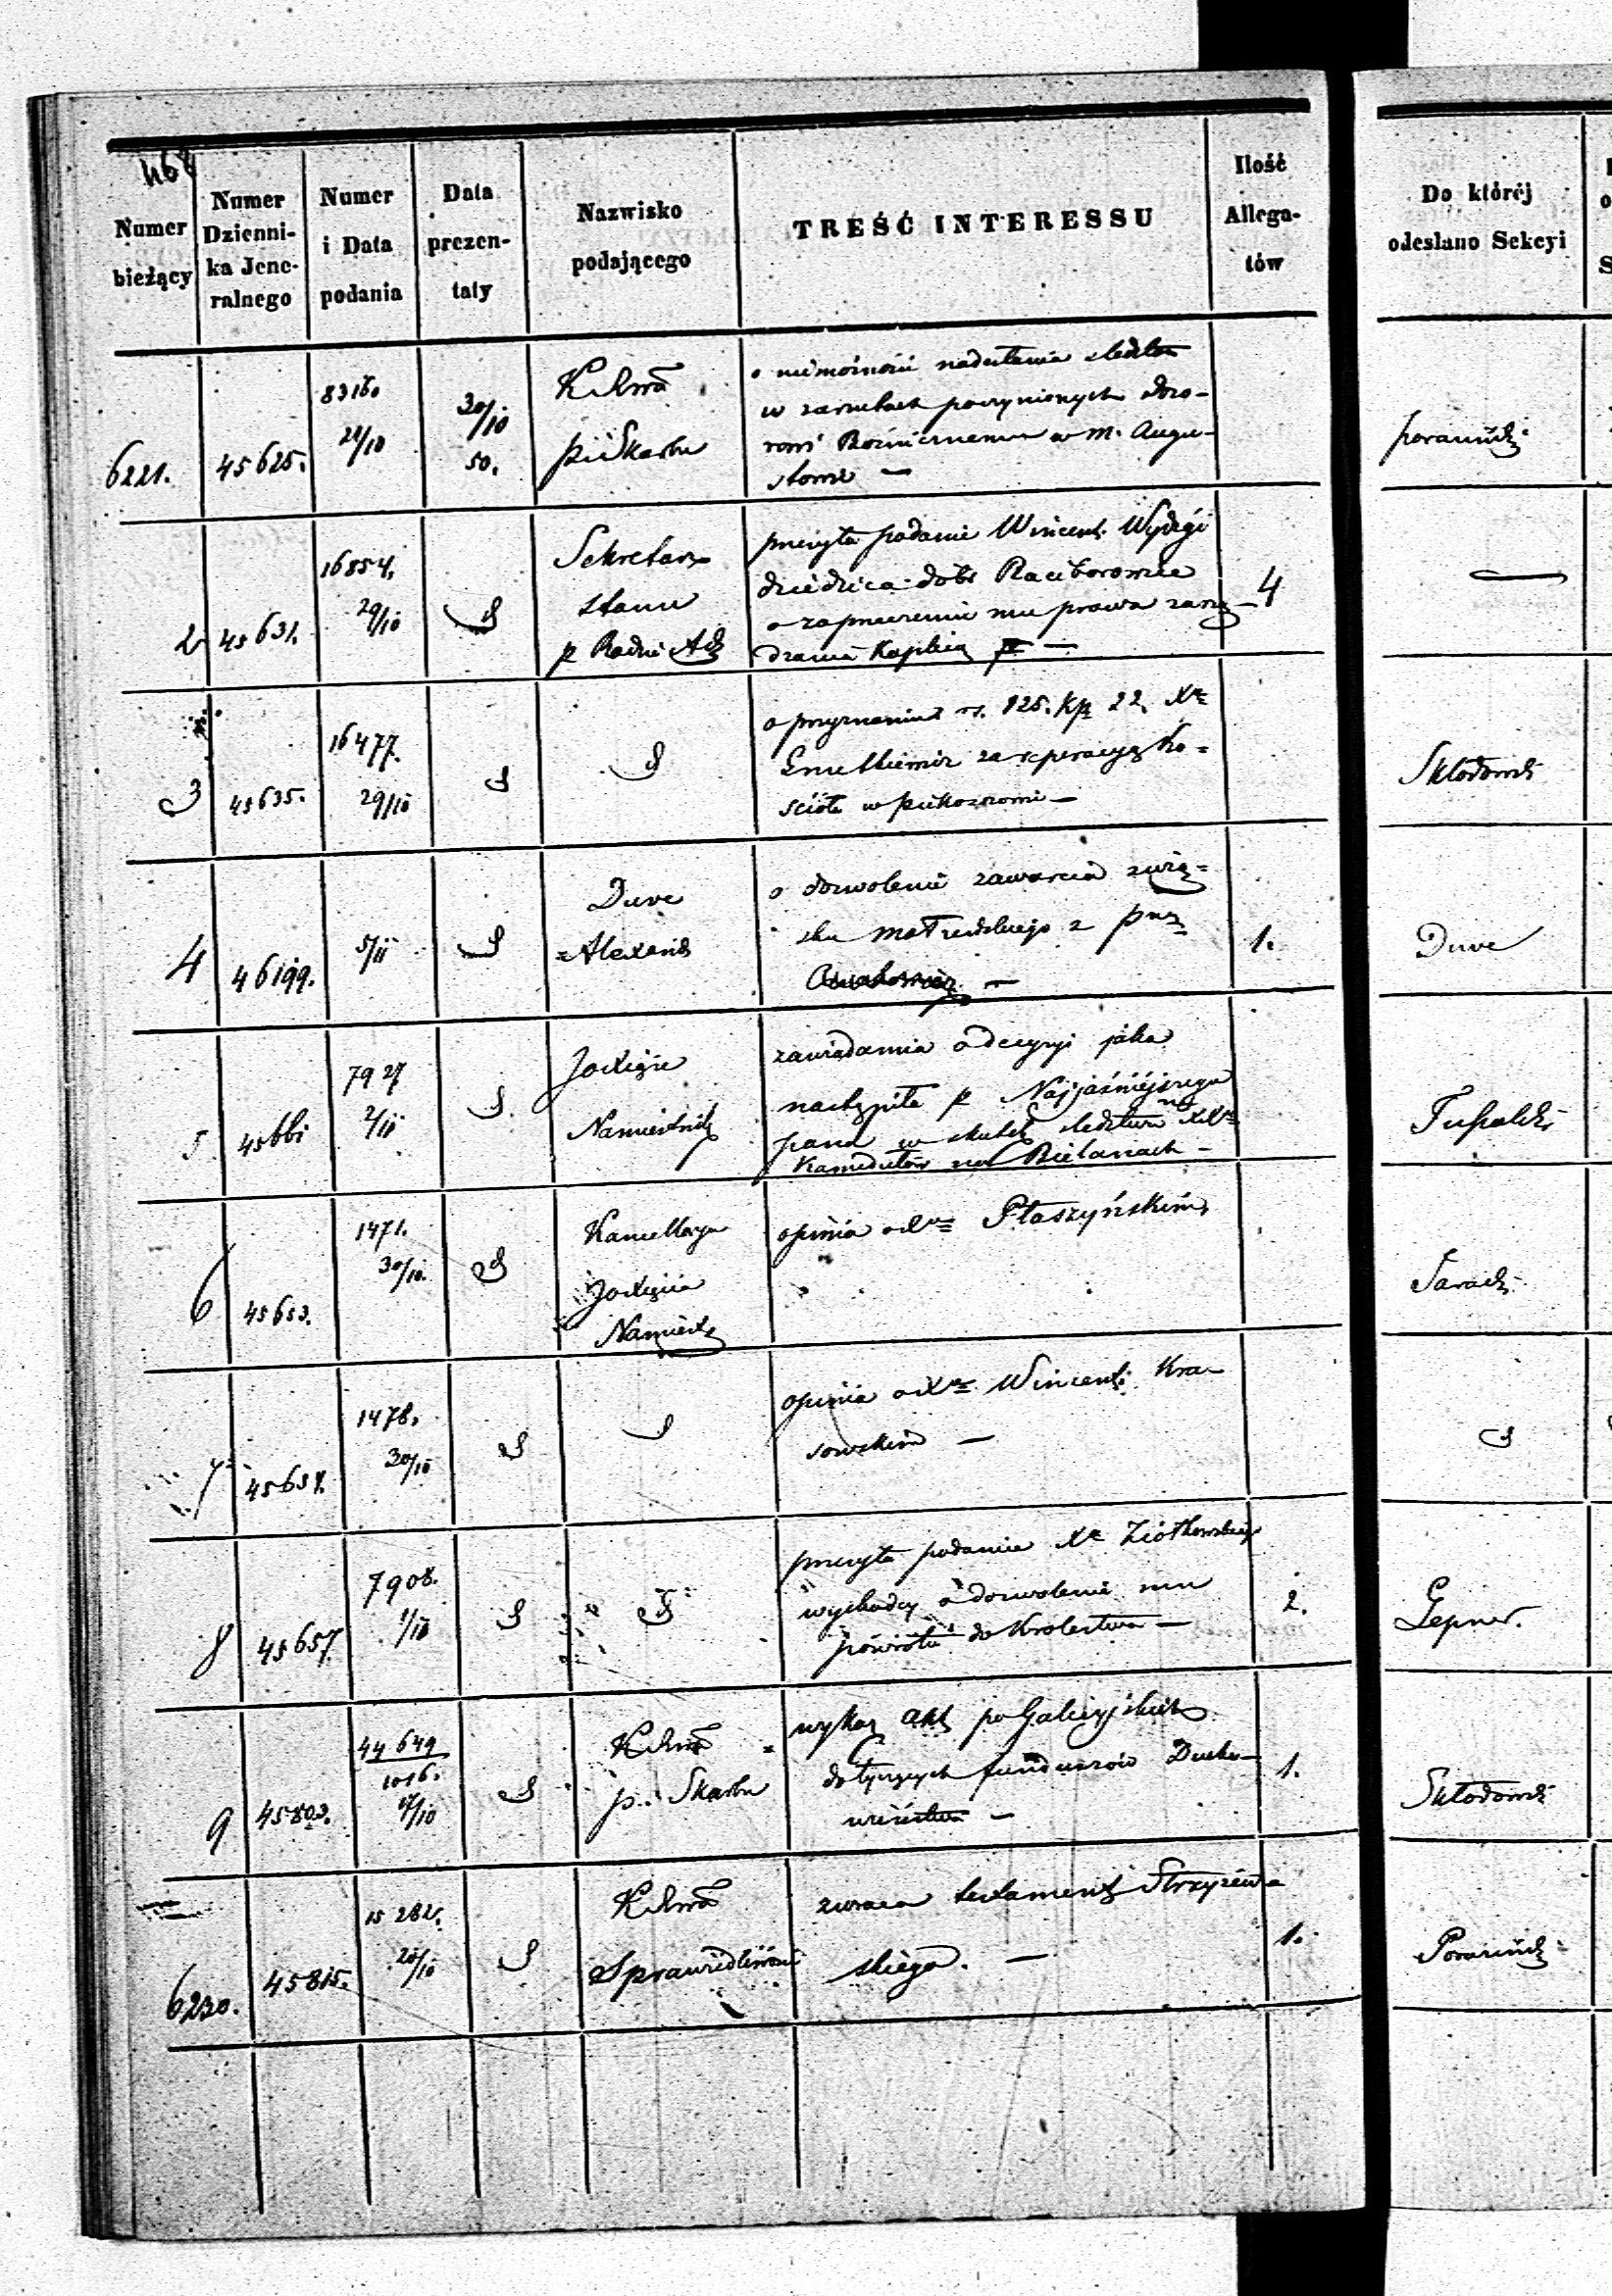 468
Numer bieżący
Numer Dzienni- ka Jene- ralnego
Numer i Data podania
Data prezen- taty
Nazwisko podającego
TREŚĆ INTERESSU
Ilość Allega- tów
Do któréj odesłano Sekcyi
6221. 45625. 8316. 21/10 30/10 50.
Skarbu
o niemożności nadesłania
w zarzutach poczynionych Dozo-
rowi Bóżniczemu w M. Augu-
stowie —
2 45631. 16854. 29/10
Sekretarz
Stanu
p Radzie
przesyła podanie Wincent. Wydżgi
dziedzica dóbr Raciborowice
o zaprzeczenie mu prawa zarzą-
dzania Kaplicą —
4
3 45635. 16477. 29/10
o przyznaniu rs. 125. kp 22. Xu
za reperacyą Ko-
ścioła w —
Skłodowsk
4 46199. 5/11
Duve
Alexand
o dozwolenie zawarcia zwią-
zku małżeńskiego z
1.
Duve
5 7927 2/11
JO Xiąże
Namiestnik
zawiadamia o decyzyi jaka
nastąpiła p Najjaśniejszego
Pana w skutek śledztwa
Kamedułów na Bielanach —
Tupalsk
6 45653. 1471. 30/10
Kancellarya
JO Xięcia
Namiest
opinia o Xu Ptaszyńskim
7 1478. 30/10
opinia o Xu Wincent Kra-
sowskim —
8 45657. 7908. 1/10
przesyła podanie Xa Ziółkowskieg
wychodcy o dozwolenie mu
powrotu do Królestwa —
2.
Lepner.
9 45803. 44649 1016. 17/10
p. Skarbu
wykaz akt po Galicyjskich
dotyczących funduszów Ducho-
wieństwa —
1.
Skłodowsk
6230. 45815. 15282. 20/10
Sprawiedliwości
zwraca testament Strzyżew-
skiego. —
1.